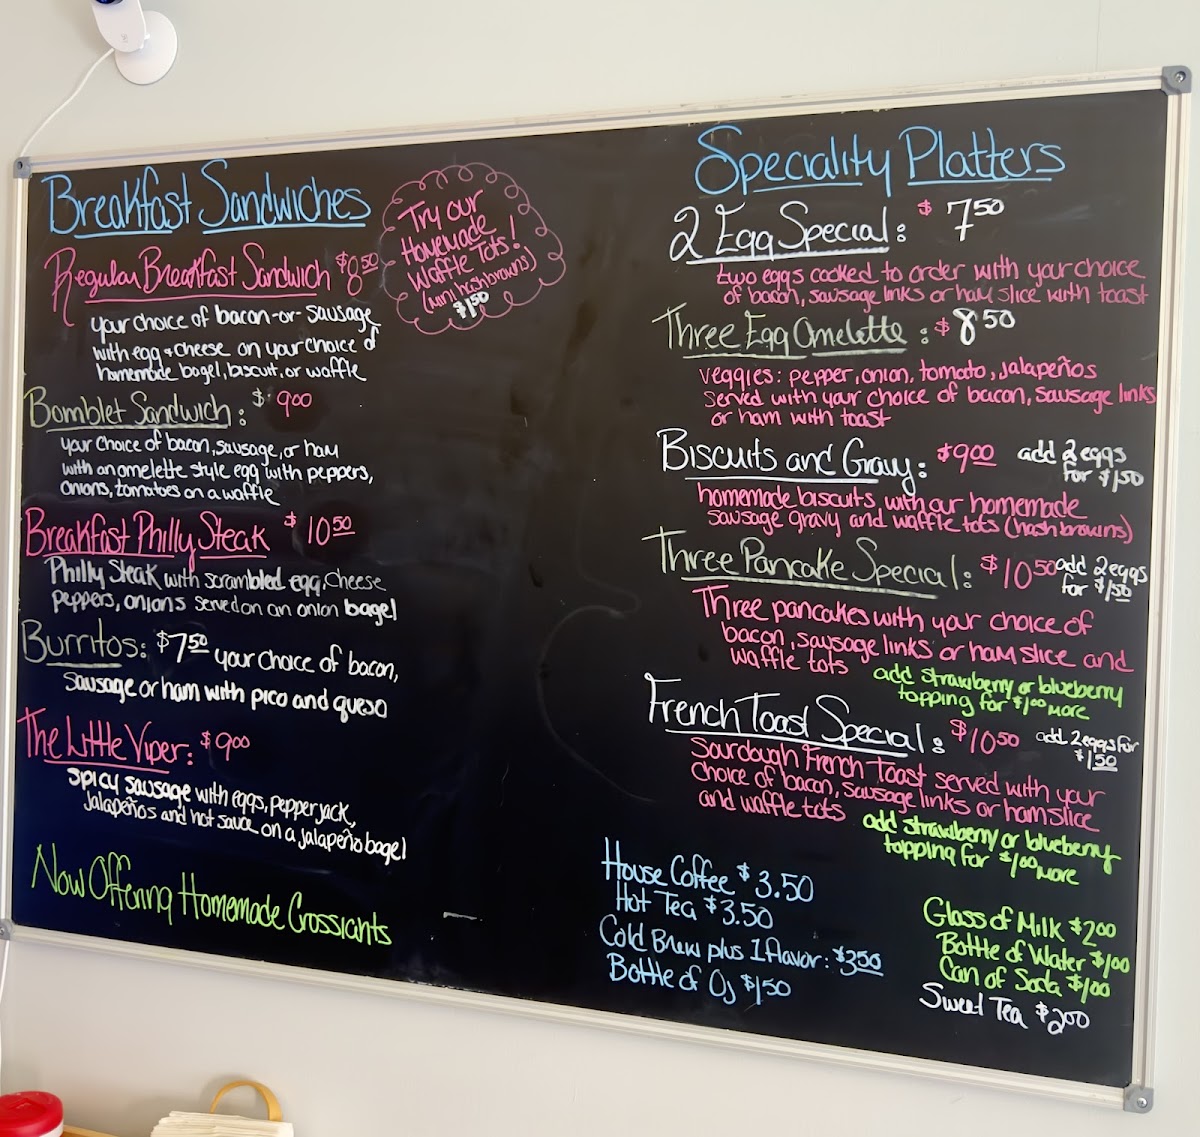 Breakfast Sandwiches
Regular Breakfast Sandwich $8.50
your choice of bacon -or- sausage
with egg + cheese on your choice of
homemade bagel, biscuit, or waffle
Bomblet Sandwich: $9.00
your choice of bacon, sausage, or ham
with an omelette style egg with peppers,
onions, tomatoes on a waffle
Breakfast Philly Steak $10.50
Philly Steak with scrambled egg, cheese
peppers, onions served on an onion bagel
Burritos: $7.50 your choice of bacon,
sausage or ham with pico and queso
The Little Viper: $9.00
spicy sausage with eggs, pepper jack,
jalapeños and hot sauce on a jalapeño bagel
Now Offering Homemade Crossiants
Try our
Homemade
Waffle Tots!
(mini hashbrowns)
$1.50
Speciality Platters
2 Egg Special: $7.50
two eggs cooked to order with your choice
of bacon, sausage links or ham slice with toast
Three Egg Omelette: $8.50
veggies: pepper, onion, tomato, jalapeños
served with your choice of bacon, sausage links
or ham with toast
Biscuits and Gravy: $9.00 add 2 eggs
for $1.50
homemade biscuits with our homemade
sausage gravy and waffle tots (hashbrowns)
Three Pancake Special: $10.50 add 2 eggs
for $1.50
Three pancakes with your choice of
bacon, sausage links or ham slice and
waffle tots
add strawberry or blueberry
topping for $1.00 more
French Toast Special: $10.50 add 2 eggs for
$1.50
Sourdough French Toast served with your
choice of bacon, sausage links or ham slice
and waffle tots
add strawberry or blueberry
topping for $1.00 more
House Coffee $3.50
Hot Tea $3.50
Cold Brew plus 1 flavor: $3.50
Bottle of OJ $1.50
Glass of Milk $2.00
Bottle of Water $1.00
Can of Soda $1.00
Sweet Tea $2.00